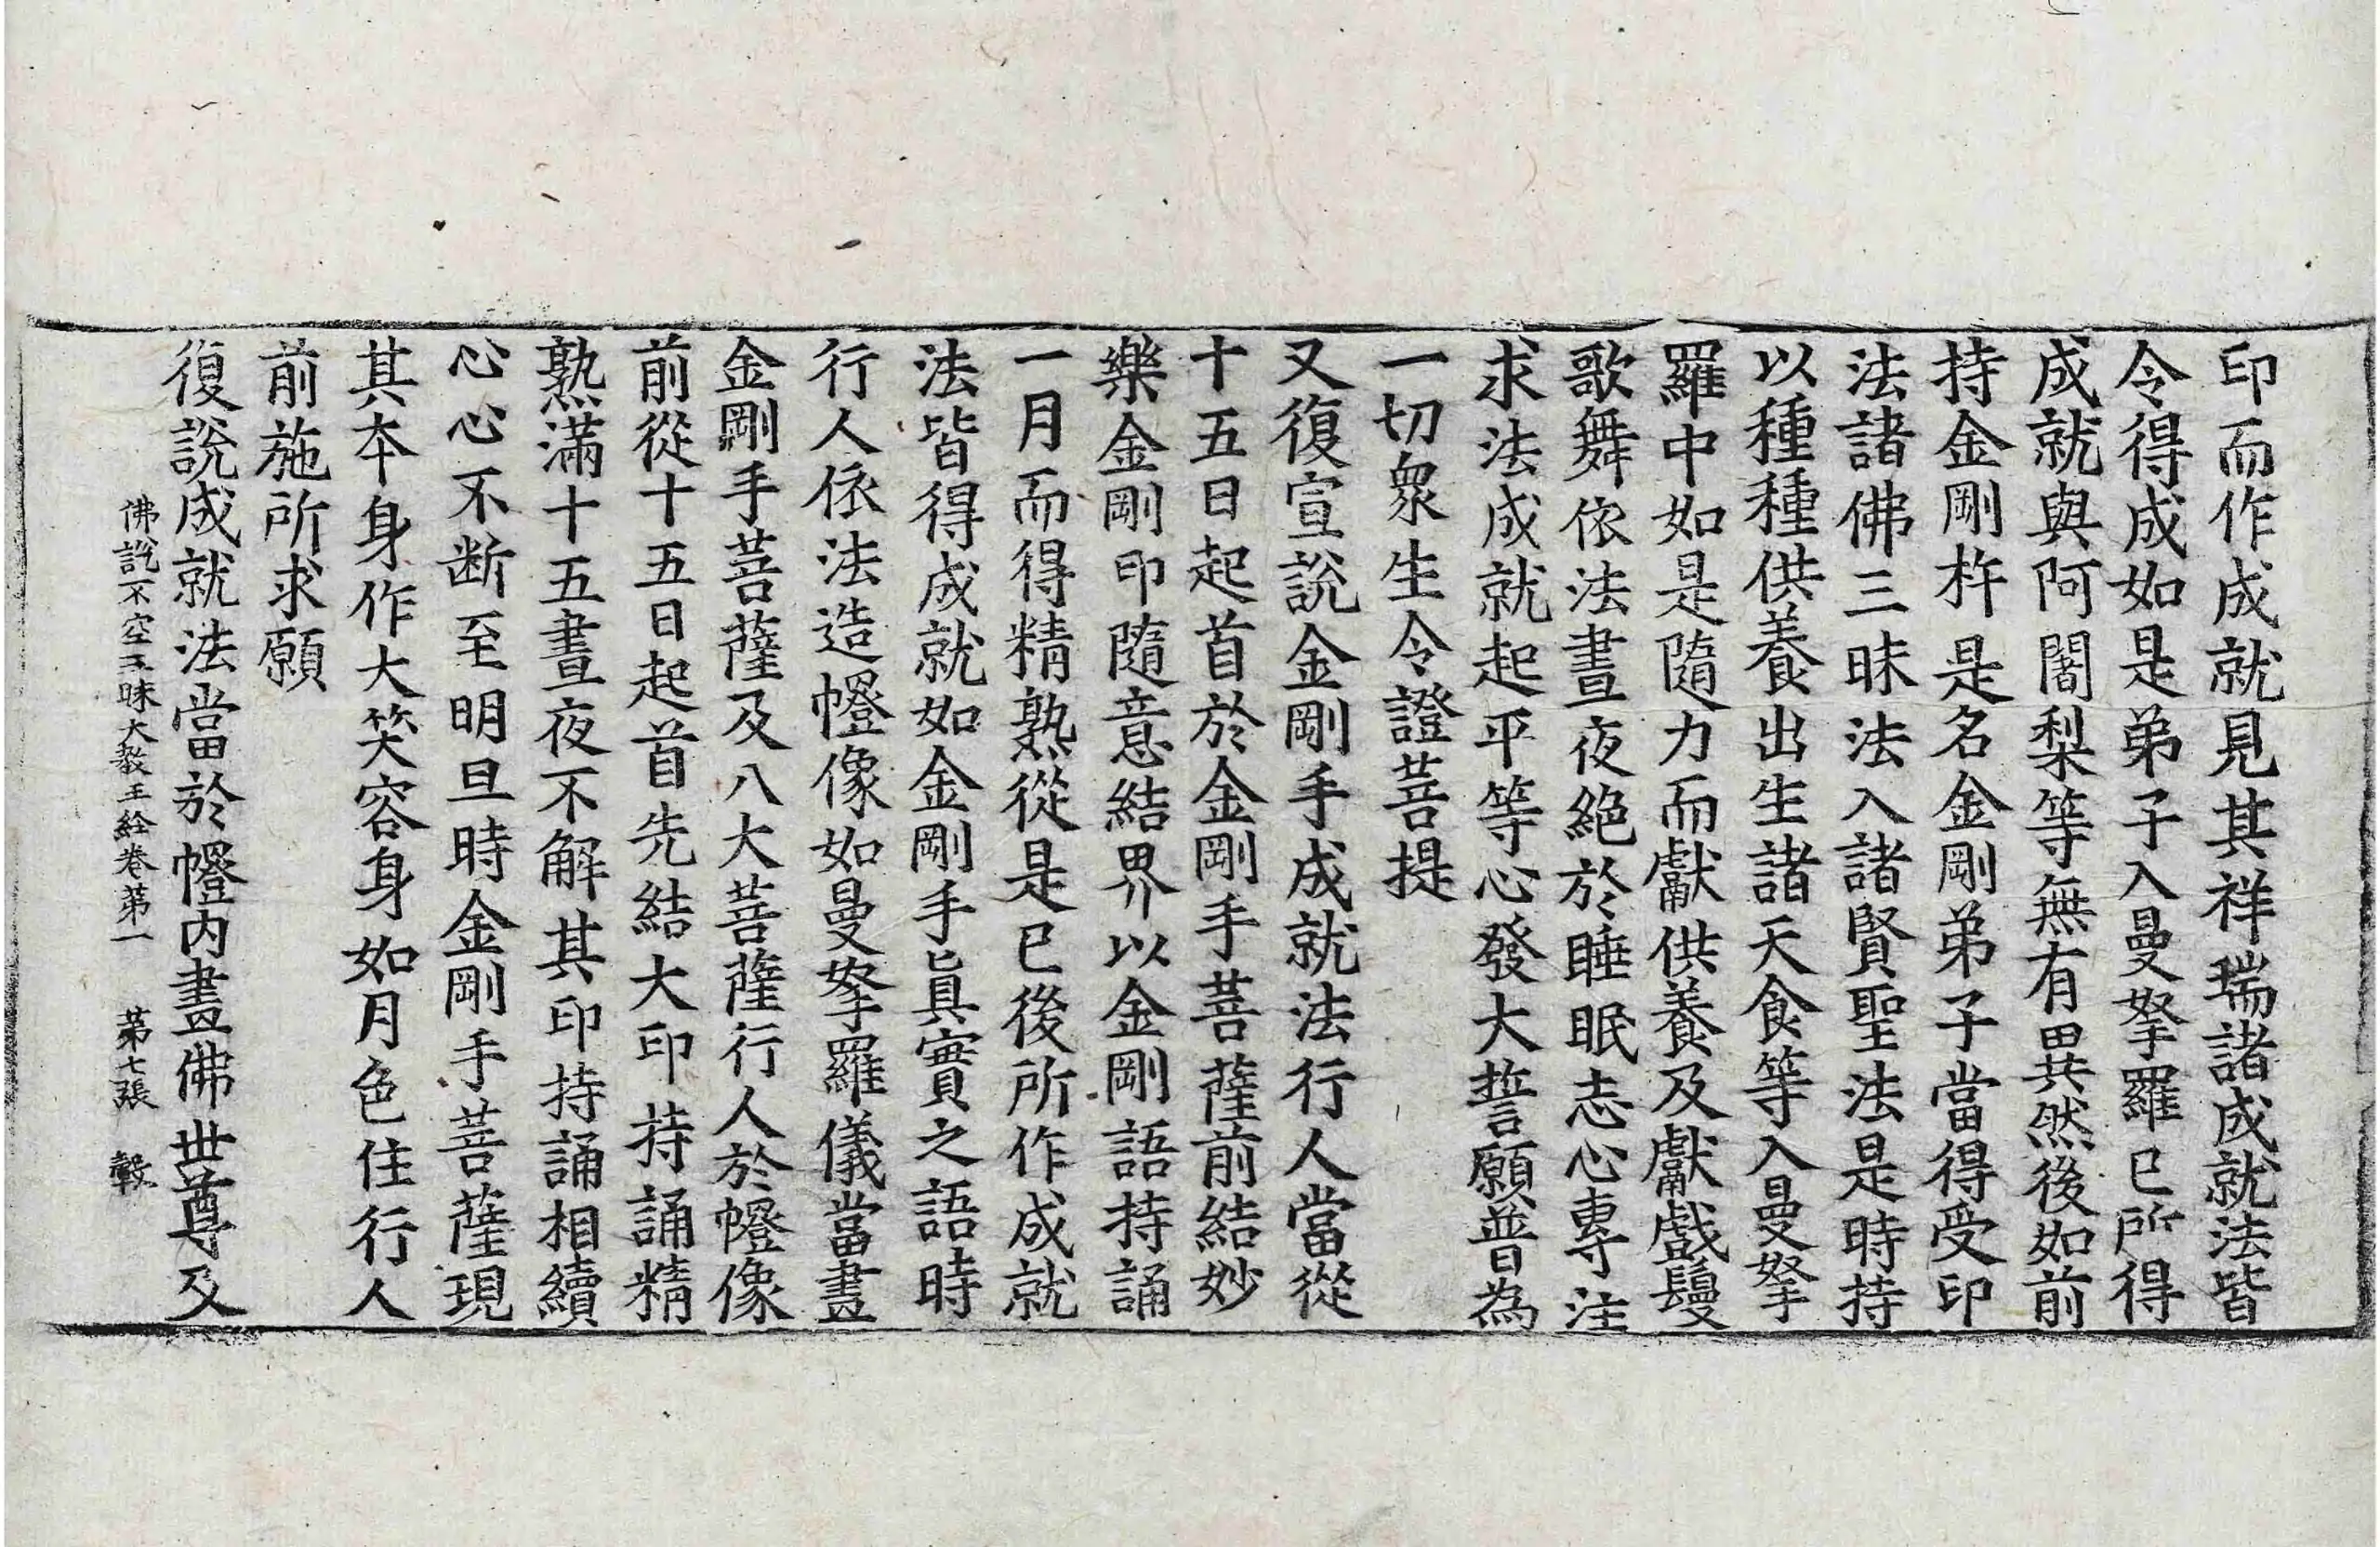 印而作成就見其祥瑞諸成就法皆
令得成如是弟子入曼拏羅已所得
成就與阿闍梨等無有異然後如前
持金剛杵是名金剛弟子當得受印
法諸佛三昧法入諸賢聖法是時持
以種種供養出生諸天食等入曼拏
羅中如是隨力而獻供養及獻戲鬘
歌舞依法晝夜絕於睡眠志心專注
求法成就起平等心發大誓願普為
一切衆生令證菩提
又復宣說金剛手成就法行人當從
十五日起首於金剛手菩薩前結妙
樂金剛印隨意結界以金剛語持誦
一月而得精熟從是已後所作成就
法皆得成就如金剛手眞實之語時
行人依法造㡧像如曼拏羅儀當畫
金剛手菩薩及八大菩薩行人於㡧像
前從十五日起首先結大印持誦精
熟滿十五晝夜不解其印持誦相續
心心不断至明旦時金剛手菩薩現
其本身作大笑容身如月色住行人
前施所求願
復說成就法當於㡧内畫佛世尊及
佛說不空三昧大教王経卷第一 第七張 轂